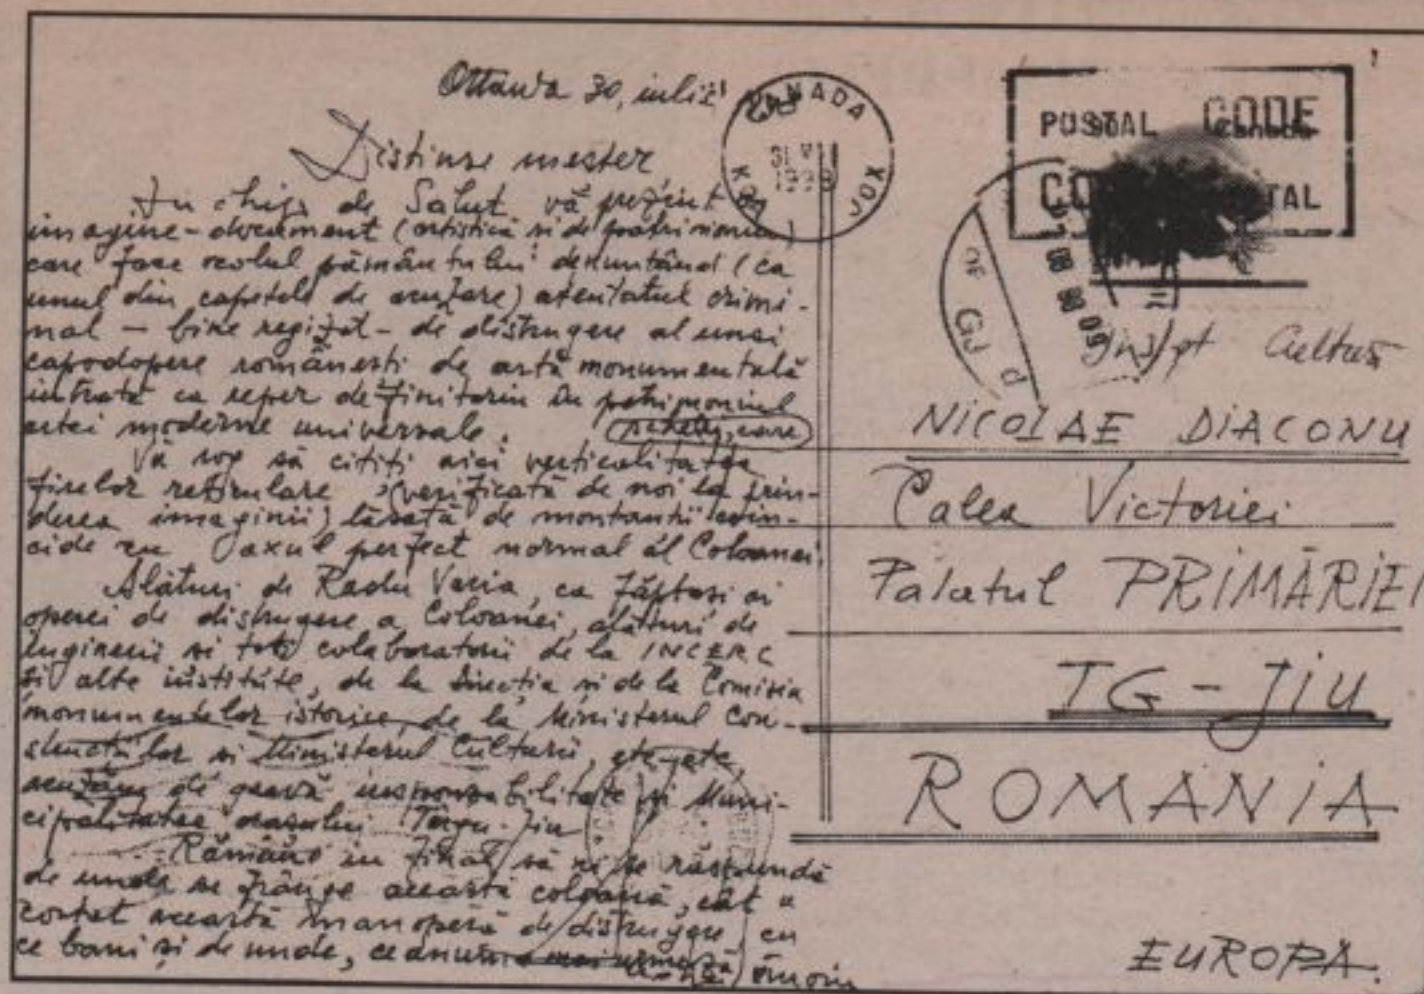 Ottawa 30, iulie
Distinse mester,
In chip de Salut vă prezint o
imagine-document (artistică si de patrimoniu)
care face ocolul pământului denuntând (ca
unul din capetele de acuzare) atentatul crimi-
nal - bine regizat - de distrugere al unei
capodopere românesti de artă monumentală
intrată ca reper definitoriu în patrimoniul
artei moderne universale.
Vă rog să cititi aici verticalitatea
firelor reticulare care (verificată de noi la prin-
derea imaginii) lăsată de montantii coin-
cide cu axul perfect normal al Coloanei.
Alături de Radu Varia, ca făptasi ai
operei de distrugere a Coloanei, alături de
inginerii si toti colaboratorii de la INCERC
si alte institute, de la Directia si de la Comisia
monumentelor istorice, de la Ministerul Con-
structiilor si Ministerul Culturii, etc-etc,
acuzăm de gravă iresponsabilitate si Muni-
cipalitatea orasului Targu-Jiu
Rămâne în final să ni se răspundă
de unde se frânge această coloană, cât a
costat această manoperă de distrugere, cu
ce bani si de unde, ce anume
CANADA
31 VII
1998
K0J
POSTAL CODE
Canada
CO TAL
GJ
Cultură
NICOLAE DIACONU
Calea Victoriei
Palatul PRIMĂRIEI
TG-JIU
ROMANIA
EUROPA.